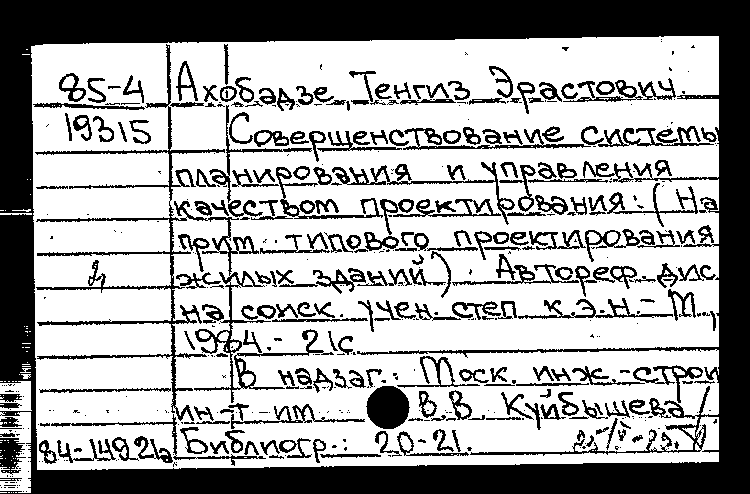 85-4 Ахобадзе, Тенгиз Эрастович.
19315 Совершенствование системы
планирования и управления
качеством проектирования: (На
прим. типового проектирования
жилых зданий). Автореф. дис
на соиск. учен. степ к.э.н. - М.,
1984. - 21с
В надзаг.: Моск. инж.-строи
ин-т им. В.В. Куйбышева
84-14921а Библиогр.: 20-21.